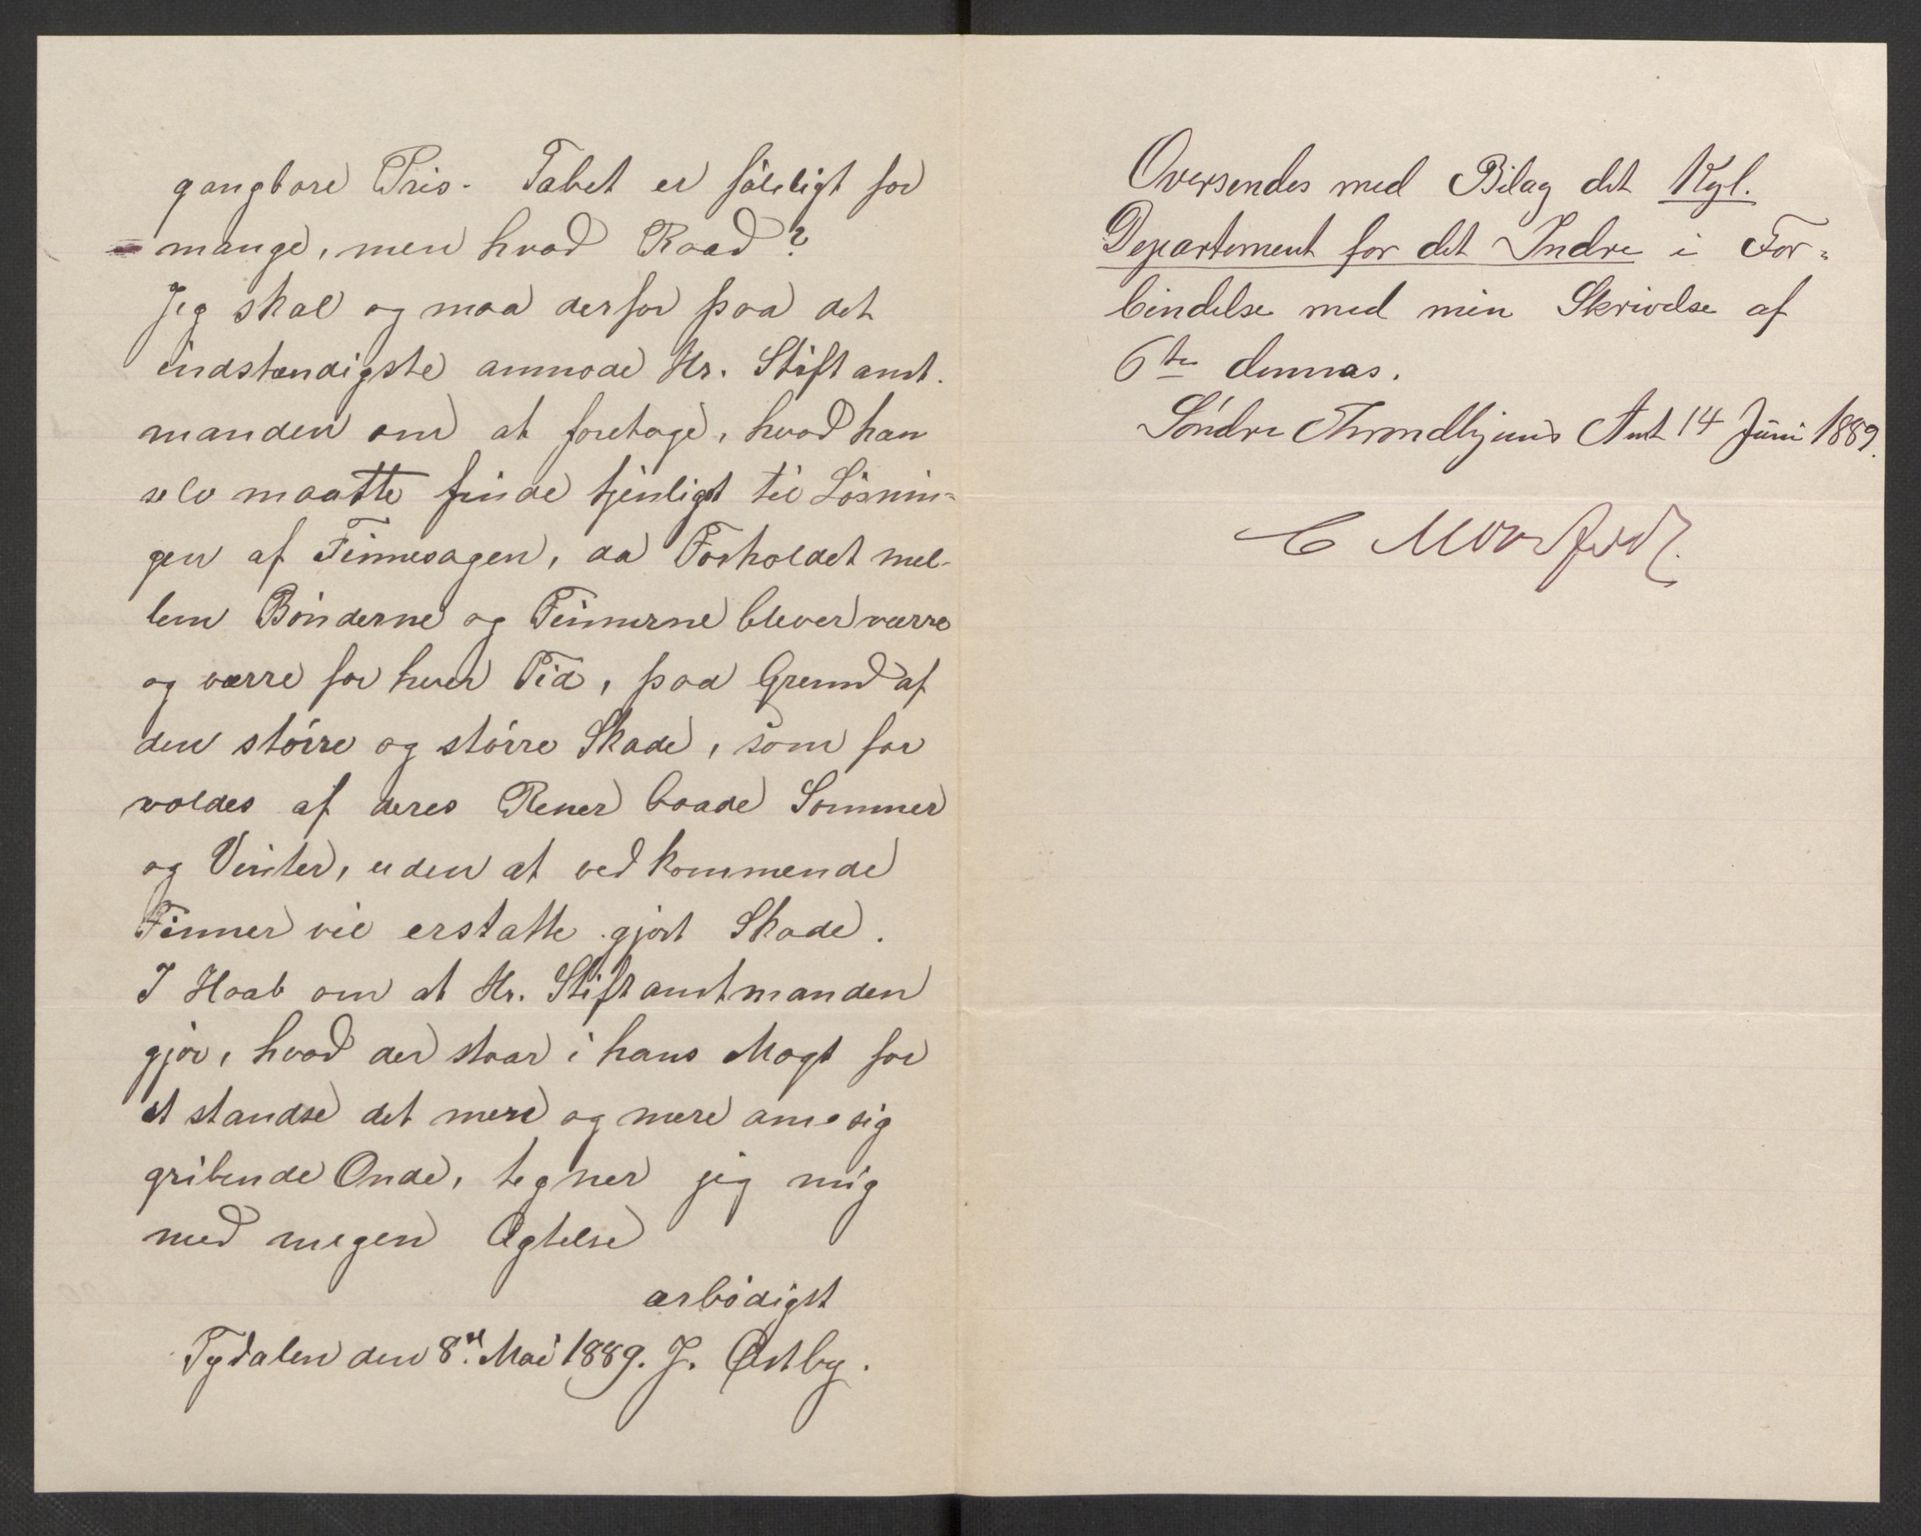 gangbare Pris. Tabet er føleligt for
mange, men hvad Raad?
Jeg skal og maa derfor paa det
indstændigste anmode Hr. Stiftamt-
manden om at foretage, hvad han
selv maatte finde tjenligst til Løsnin-
gen af Finnesagen, da Forholdet mel-
lem Bønderne og Finnerne bliver værre
og værre for hver Tid, paa Grund af
den større og større Skade, som for
voldes af deres Rener baade Sommer
og Vinter, uden at vedkommende
Finner vil erstatte gjort Skade.
I Haab om at Hr. Stiftamtmanden
gjør, hvad der staar i hans Magt for
at standse det mere og mere om sig
gribende Onde, tegner jeg mig
med megen Agtelse
ærbødigst
Tydalen den 8de Mai 1889. J. Østby.
Oversendes med Bilag det Kgl.
Departement for det Indre i For-
bindelse med min Skrivelse af
6te dennes.
Søndre Throndhjems Amt 14 Juni 1889.
C Motzfeldt.